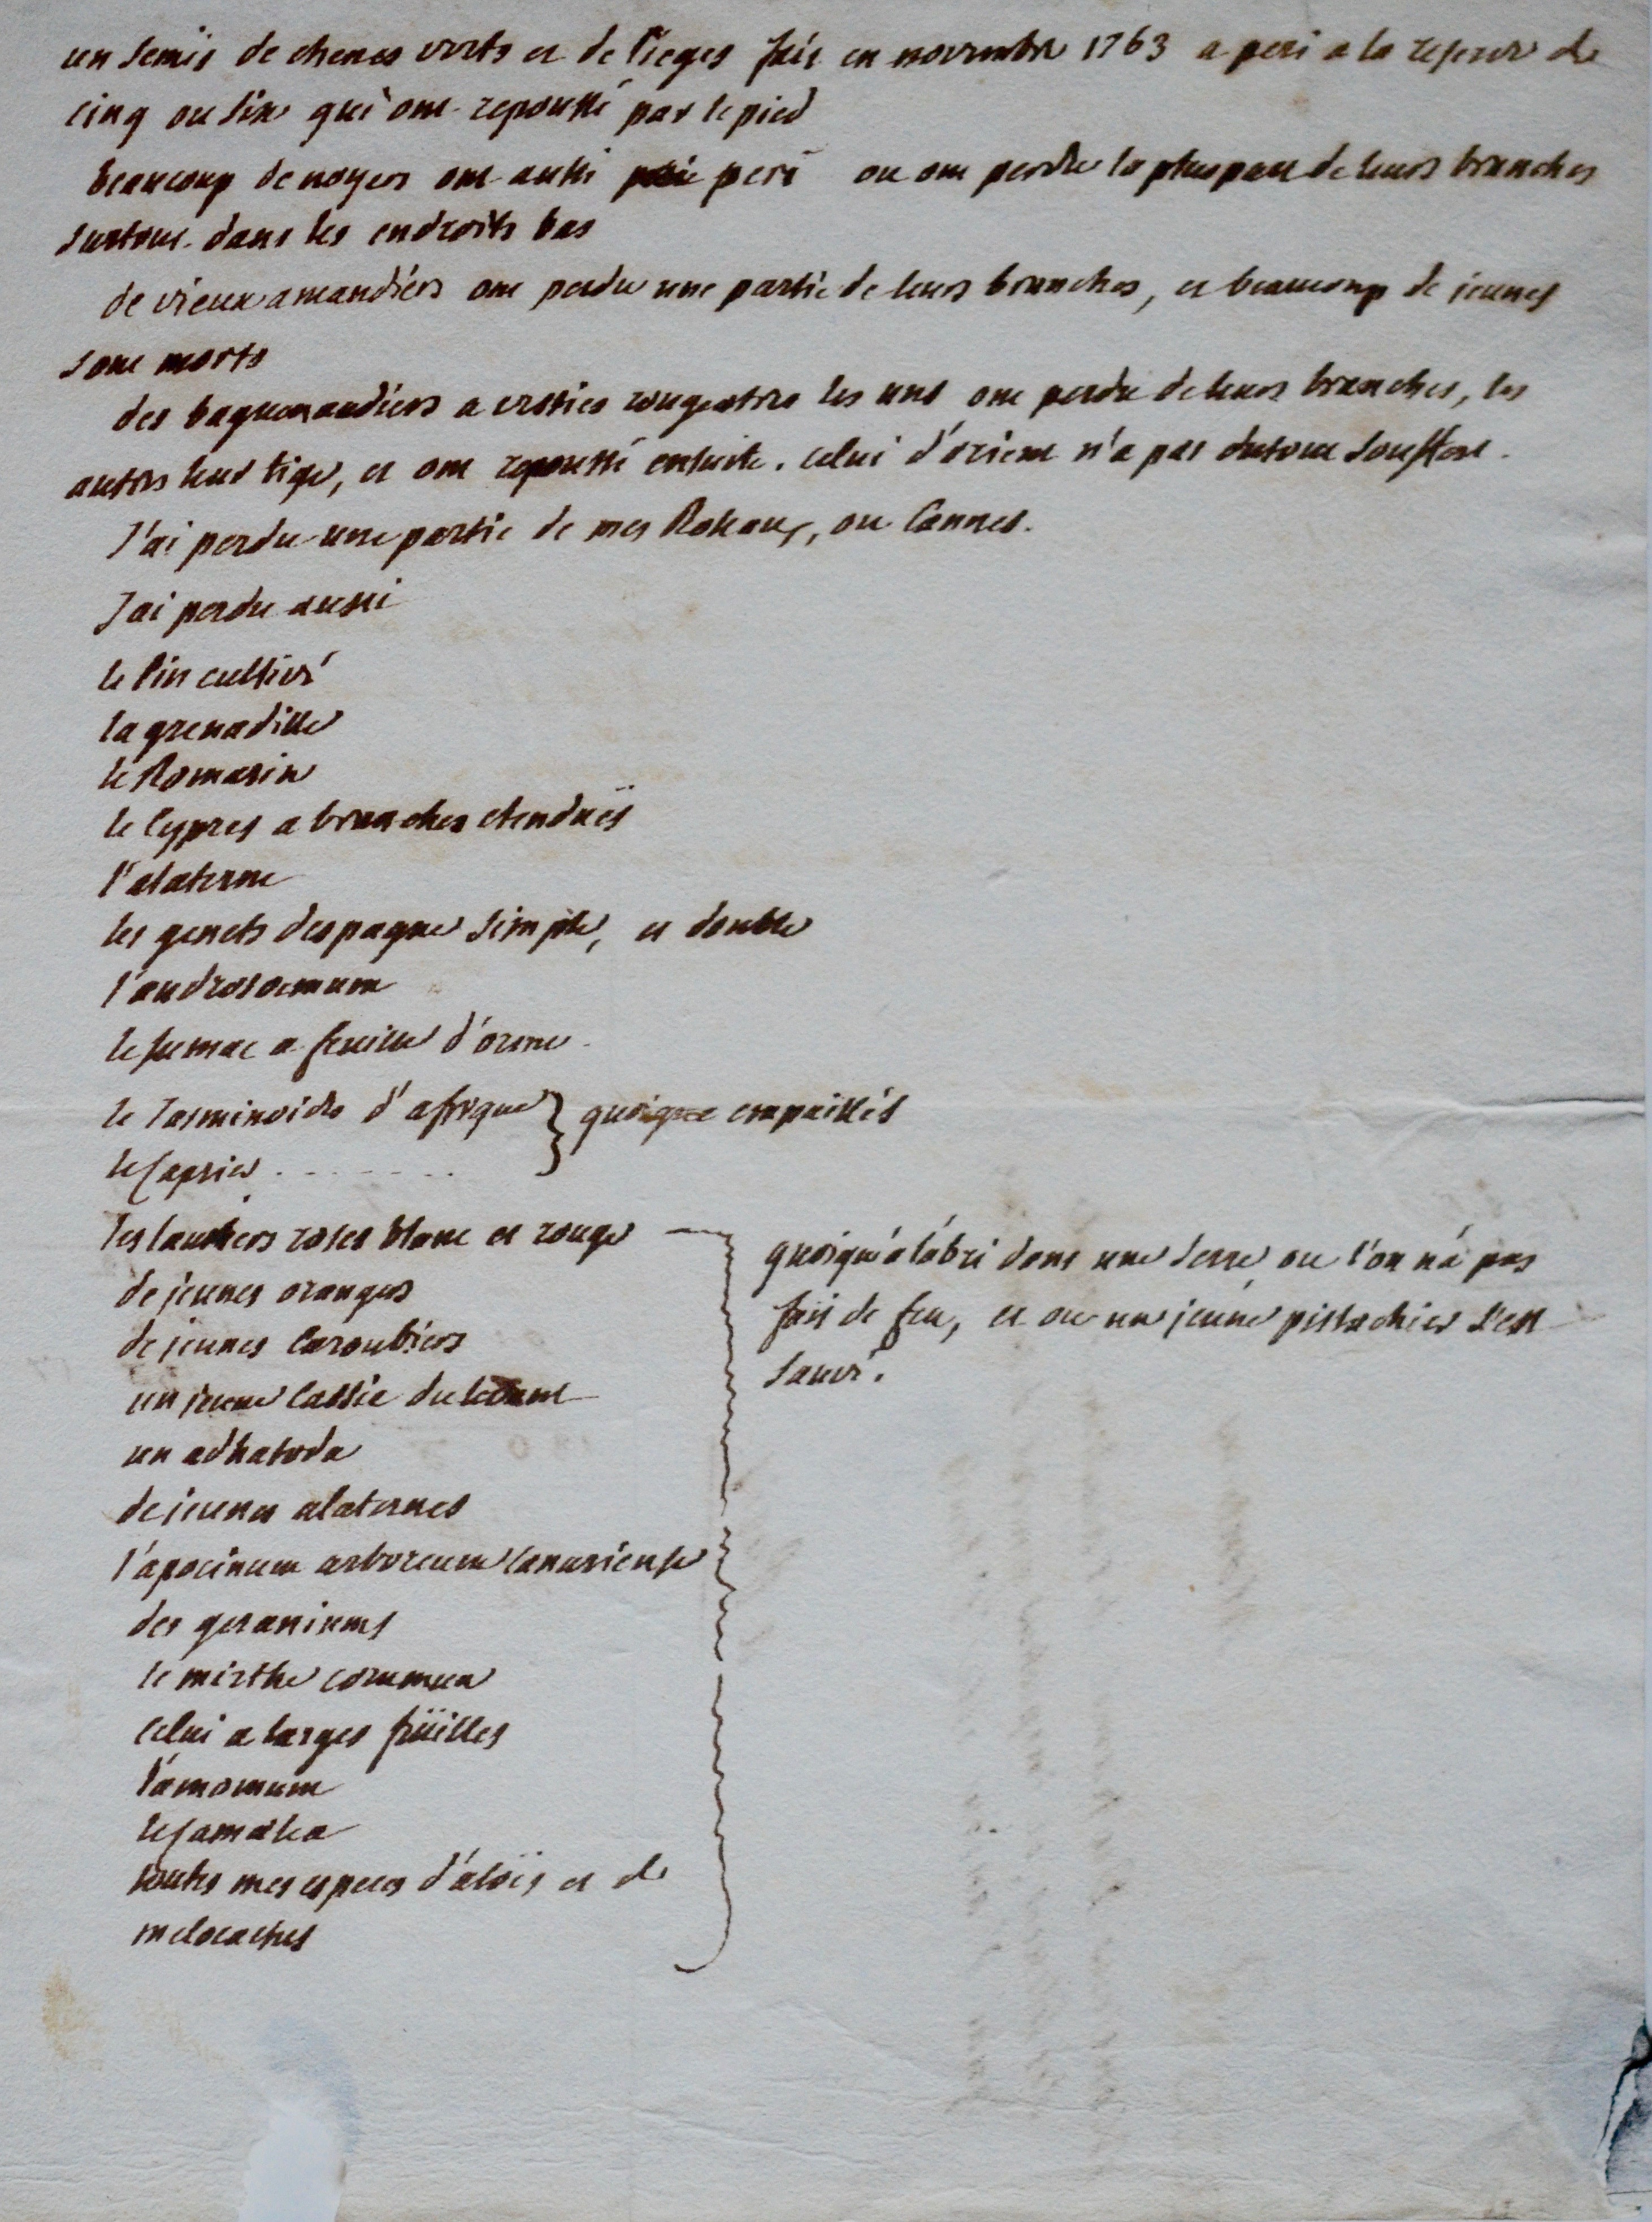 un semis de chenes verts et de lieges fait en novembre 1763 a peri a la reserve de
cinq ou six qui ont repoussé par le pied
beaucoup de noyers ont aussi peri ou ont perdu la pluspart de leurs branches
surtout dans les endroits bas
de vieux amandiers ont perdu une partie de leurs branches, et beaucoup de jeunes
sont morts
des baguenaudiers a vessies rougeatres les uns ont perdu de leurs branches, les
autres leur tige, et ont repoussé ensuite. celui d'orient n'a pas dutout souffert.
J'ai perdu une partie de mes Roseaux, ou Cannes.
J'ai perdu aussi
le Pin cultivé
la grenadille
le Romarin
le Cypres a branches etenduës
l'alaterne
les genets despagne simple, et double
l'androsaemum
le sumac a feuille d'orme
le Jasminoide d'afrique } quoique empaillés
le Caprier . . . . . . .
les lauriers roses blanc et rouge
de jeunes orangers
de jeunes Caroubiers
un jeune Cassie du levant
un adhatoda
de jeunes alaternes
l'apocinum arboreum Canariense
des geraniums
le mirthe commun
celui a larges feüilles
l'amomum
le
toutes mes especes d'aloës et de
melocactes
quoiqu'a l'abri dans une serre ou l'on n'a pas
fait de feu, et ou un jeune pistachier s'est
sauvé.